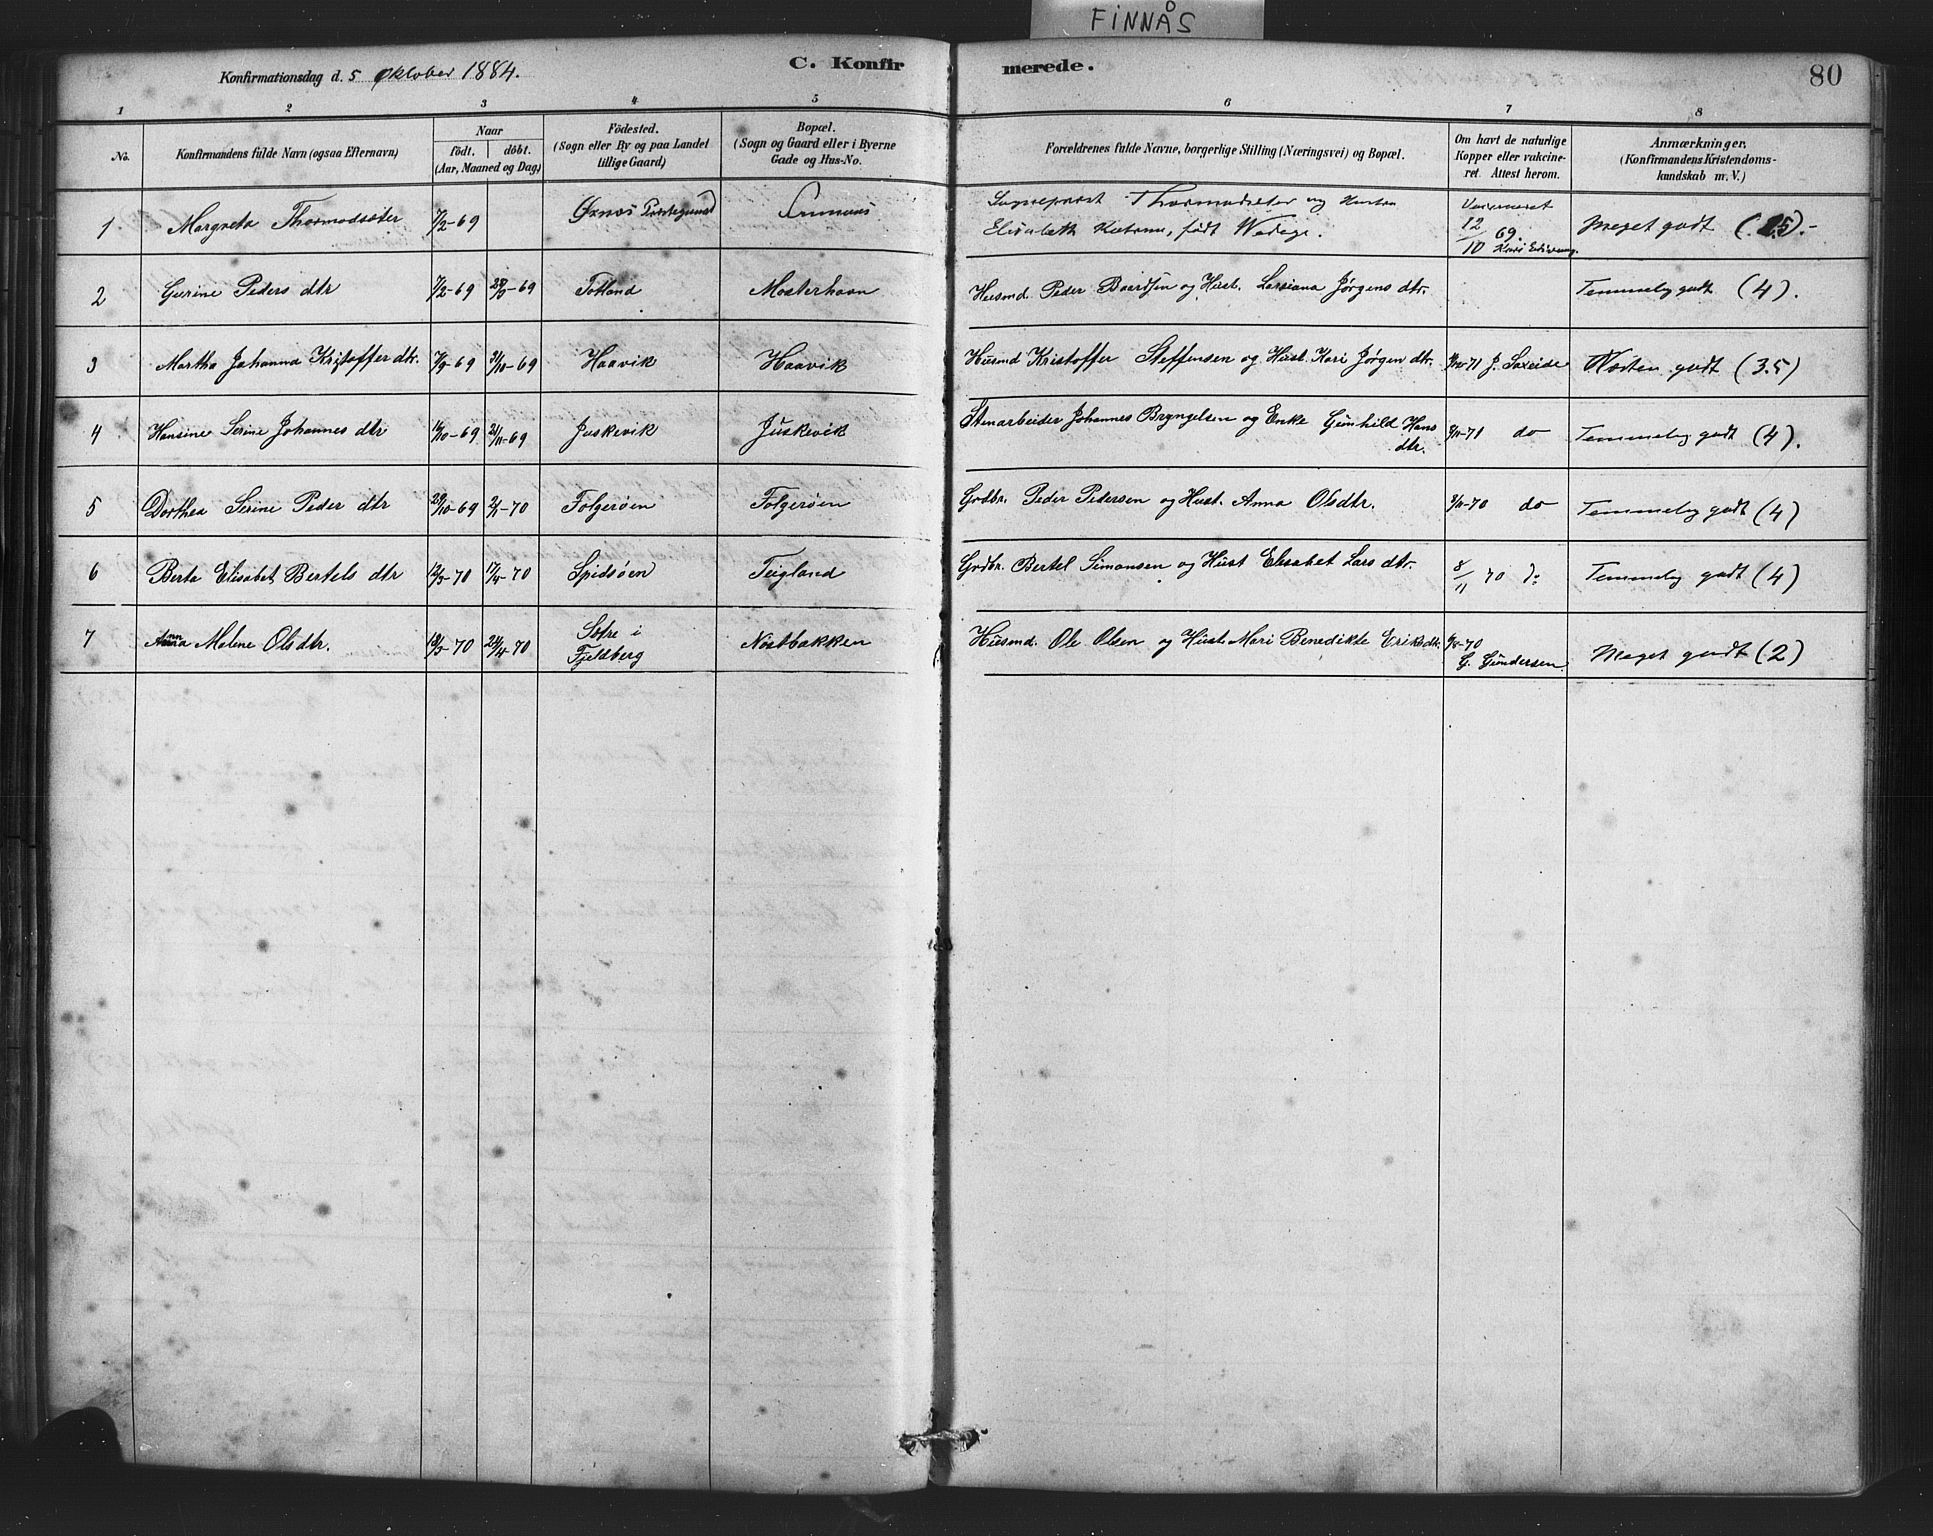 FINNÅS
Konfirmationsdag d. 5 Oktober 1884.
C. Konfirmerede.
80
1 2 3 4 5 6 7 8
No.
Konfirmandens fulde Navn (ogsaa Efternavn)
Naar
födt. döbt.
(Aar, Maaned og Dag)
Födested.
(Sogn eller By og paa Landet
tillige Gaard)
Bopæl.
(Sogn og Gaard eller i Byerne
Gade og Hus-No.
Forældrenes fulde Navne, borgerlige Stilling (Næringsvei) og Bopæl.
Om havt de naturlige
Kopper eller vakcine-
ret. Attest herom.
Anmærkninger.
(Konfirmandens Kristendoms-
kundskab m. V.)
1 Margreta Thormodsæter 7/2-69 Øxnes Sogneprest Thormodsæter og Hustru
Elisabeth Katrine, født Wedege. 12/10 69. Meget godt
2 Gurine Peders dtr 7/2-69 Totland Mosterhavn Husmd. Peder Baardsen og Hust. Larsiana Jørgens dtr. Temmelig godt (4).
3 Martha Johanna Kristoffer dtr. 7/9-69 31/10-69 Haavik Haavik Husmd Kristoffer Steffensen og Hust. Kari Jørgen dtr. J. Sæxeide Næsten godt (3.5)
4 Hansine Serine Johannes dtr 16/10-69 21/11-69 Juskevik Juskevik Stenarbeider Johannes Bryngelsen og Enke Gunhild Hans
dtr. do Temmelig godt (4).
5 Dorthea Serine Peder dtr 29/10-69 2/1-70 Folgerøen Folgerøen Grdbr. Peder Pedersen og Hust. Anna Olsdtr. 8/11-70 do Temmelig godt (4)
6 Berta Elisabet Bertels dtr 12/3-70 17/4-70 Spidsøen Teigland Grdbr. Bertel Simonsen og Hust Elisabet Lars dtr. 8/11 70 do Temmelig godt (4)
7 Anna Malene Olsdtr. 18/3-70 24/4-70 Sætre i
Fjeldberg Nøstbakken Husmd. Ole Olsen og Hust. Mari Benedikte Eriksdtr. 6/8-70
G. Gundersen Meget godt (2)